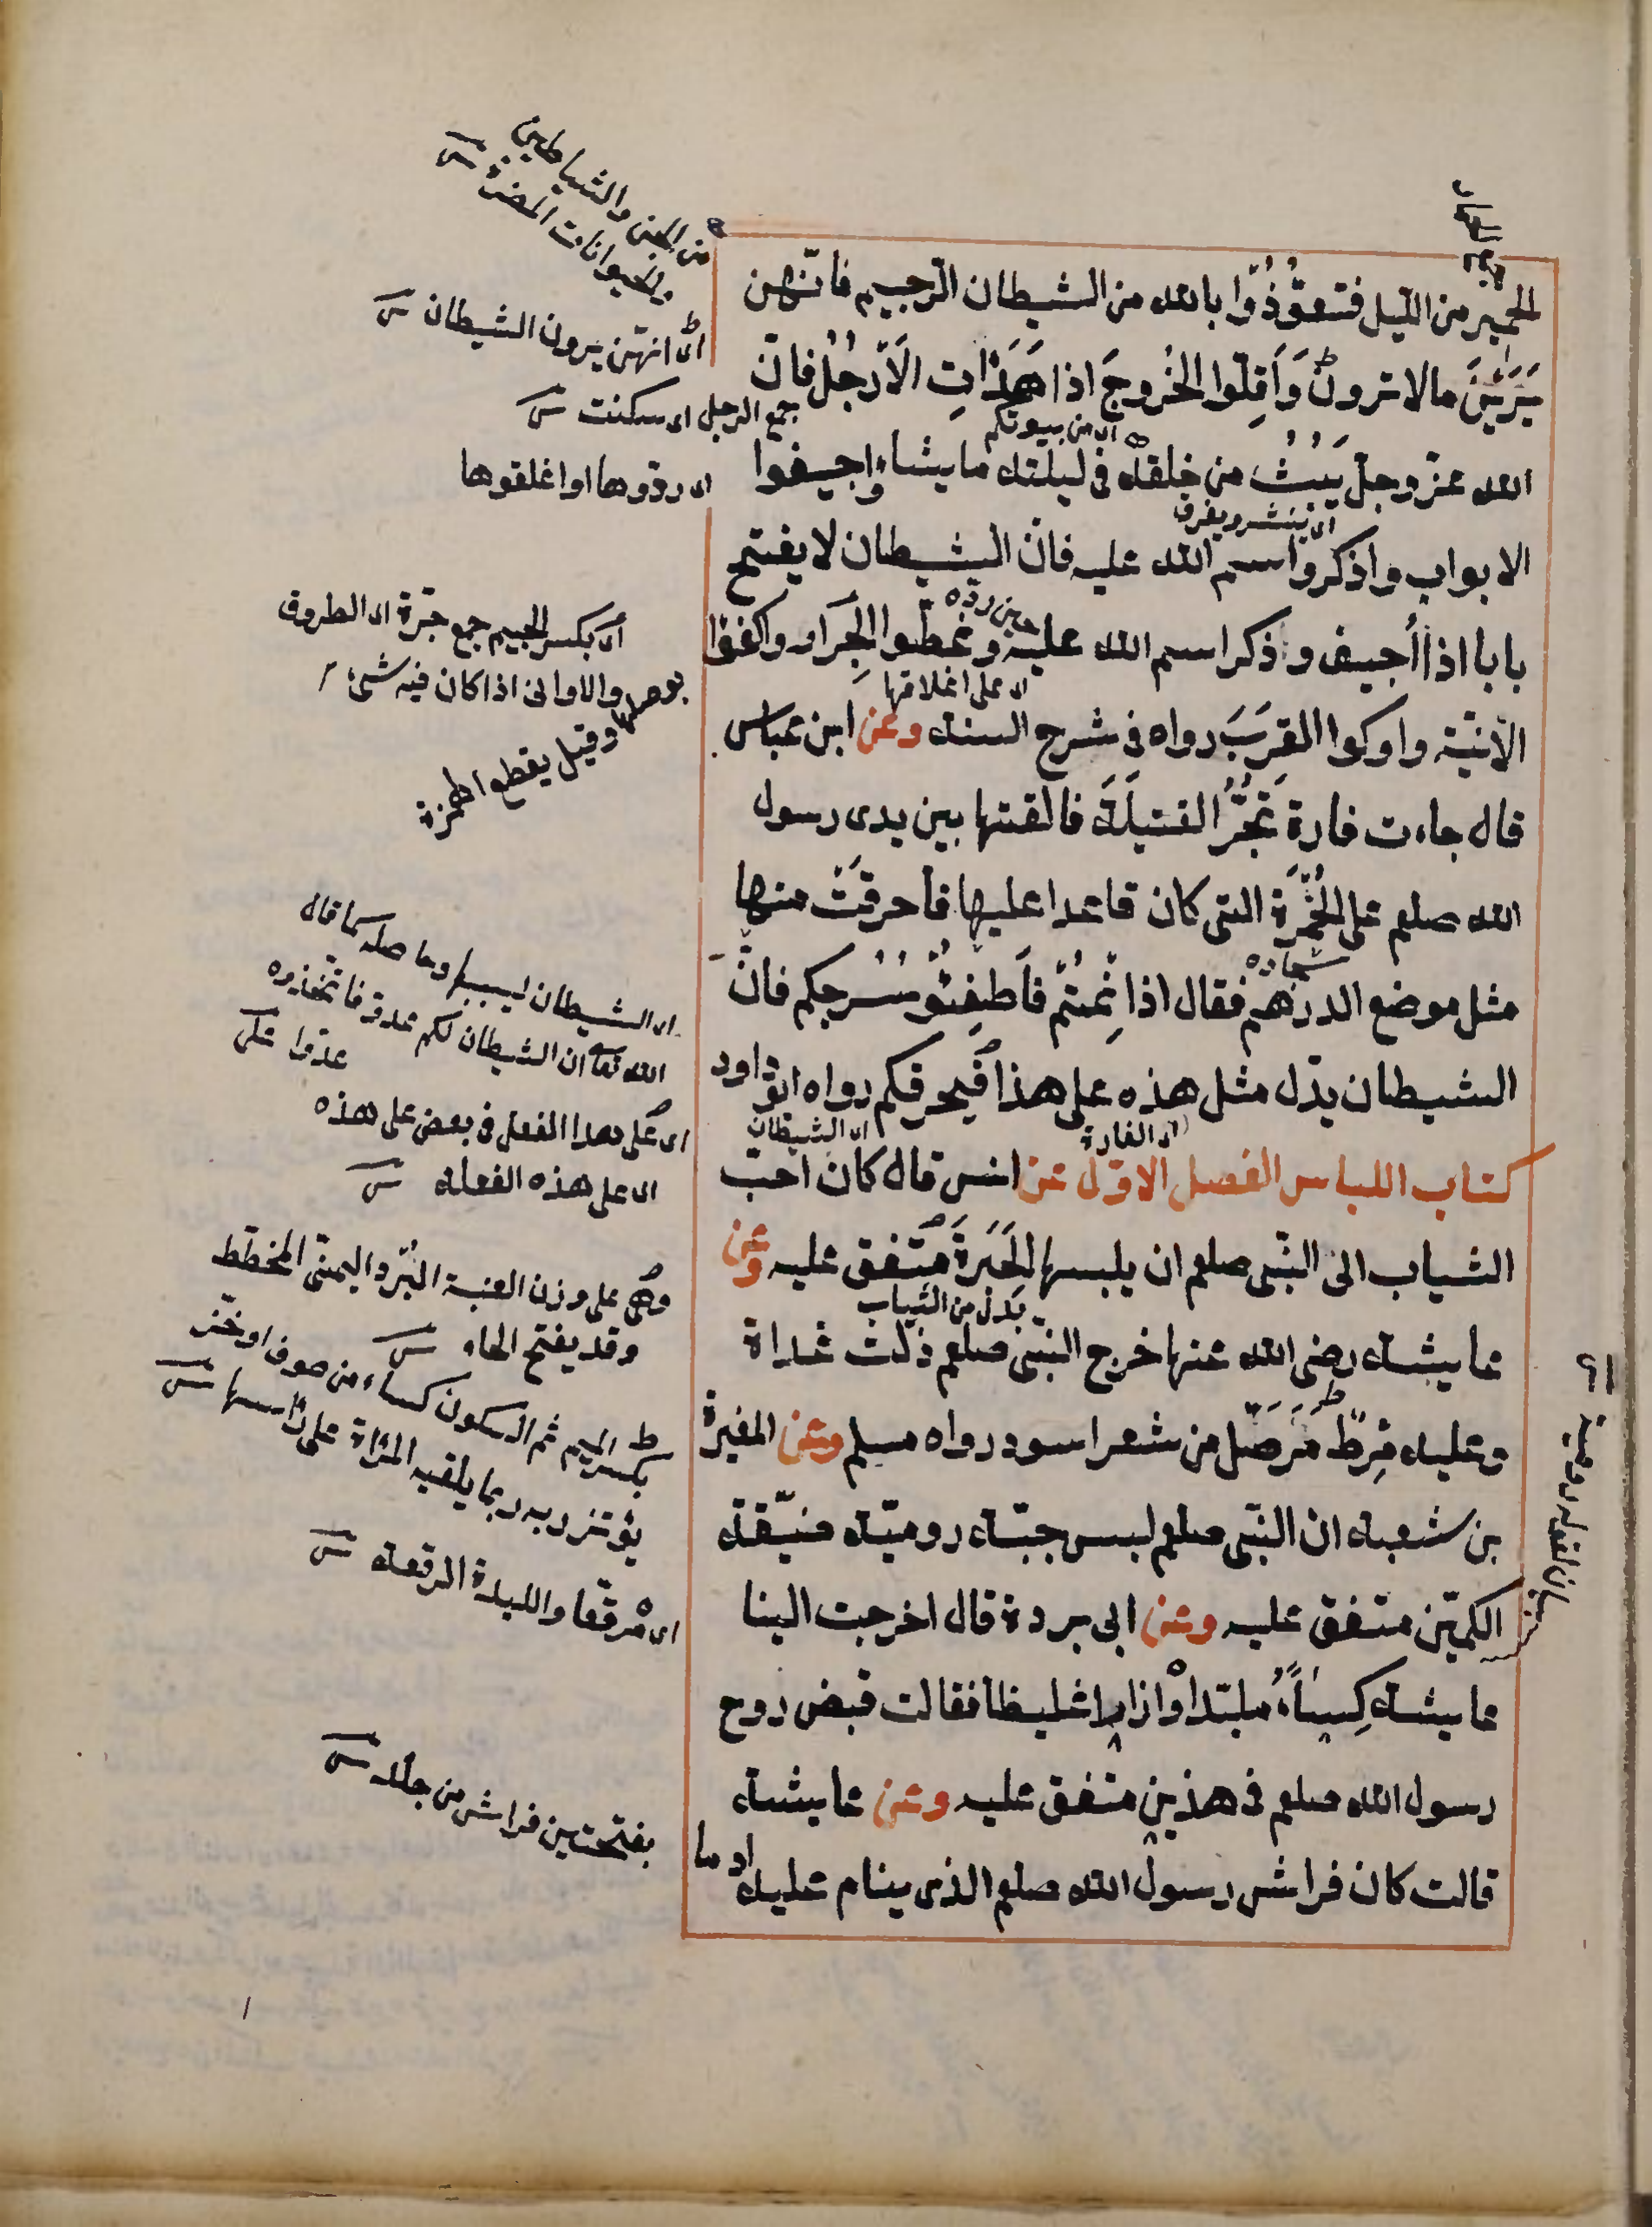 الحمير من الليل فتعوّذوا بالله من الشيطان الرجيم فانّهن
يَرَيْنَ مالا ترون وَاَقِلّوا الخُروجَ اذا هَدَاَتِ الاَرْجُلُ فانّ
الله عزّ وجلّ يَبُثُّ من خلقه فى ليلته ما يشاء واجيفوا
الابواب واذكروا اسم الله عليه فانّ الشيطان لا يفتح
بابا اذا اُجيف وذكر اسم الله عليه وغطّوا الجِرَار واكفؤا
الآنية واوكوا القِرَبَ رواه فى شرح السنه وعن ابن عباس
قال جاءت فارة تَجُرُّ الفتيلَةَ فالقتها بين يدى رسول
الله صلعم على الخُمْرَة التى كان قاعدا عليها فاحرقَتْ منها
مثل موضع الدرهم فقال اذا نِمْتُم فاَطفِئُو سُرُجكم فانّ
الشيطان يدّل مثل هذه على هذا فيحرقكم رواه ابو داود
كتاب اللباس الفصل الاوّل عن انس قال كان احبّ
الثياب الى النّبى صلعم ان يلبسها الحِبَرَةَ متّفق عليه وعن
عايشه رضى الله عنها خرج النبّى صلعم ذات غداة
وعليه مِرطٌ مُرَحَّل من شعر اسود رواه مسلم وعن المغيرة
بن شعبه ان النبّى صلعم لبس جبّه روميّه ضيّقة
الكمّين متّفق عليه وعن ابى بردة قال اخرجت الينا
عايشه كِساءً مُلبّدا وازارا غليظا فقالت قبض روح
رسول الله صلعم فى هذين متفق عليه وعن عايشه
قالت كان فراش رسول الله صلعم الذى ينام عليه ادما
من الجن والشياطين
والحيوانات المضرة
اى انهّن يرون الشيطان
جمع الرجل اى سكنت
اى من بيوتكم
اى ردّوها او اغلقوها
اى ينشر ويفرق
حين ردّه
اى بكسر الجيم جمع جَرّة اى الظروف
والاوانى اذا كان فيه شىء
اى على اغلاقها
وقيل بقطع الهمزة
سجاده
اى الشيطان ليسببها وحاصله كما قال
الله تعا ان الشيطان لكم عدو فاتّخذوه
عدّوا
اى الفارة
اى الشيطان
اى على هذا الفعل فى بعض على هذه
اى على هذه الفعله
وهى على وزن العنبة البُرد اليمنّى المخطّط
وقد يفتح الحاء
بدل من الثياب
بكسر الميم ثم السكون كساء من صوف او خزّ
يؤتزر به ربما يلقيه المراة على راسها
اى مرقّعا واللبدة الرقعه
بفتحتين فراش من جلد